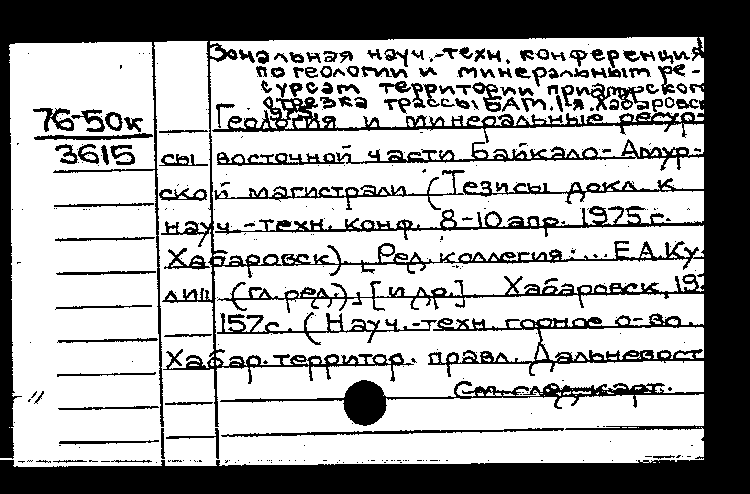 Зональная науч.-техн. конференция
по геологии и минеральным ре-
сурсам территории приамурского
отрезка трассы БАМ. 1-я. Хабаровск
1975.
76-50к
3615
Геология и минеральные ресур-
сы восточной части Байкало-Амур-
ской магистрали (Тезисы докл. к
науч.-техн. конф. 8-10 апр. 1975 г.
Хабаровск). [Ред. коллегия: ... Е.А.Ку-
лиш (гл. ред.), [и др.]. Хабаровск, 197
157с. (Науч.-техн. горное о-во.
Хабар. территор. правл. Дальневост
См. след. карт.